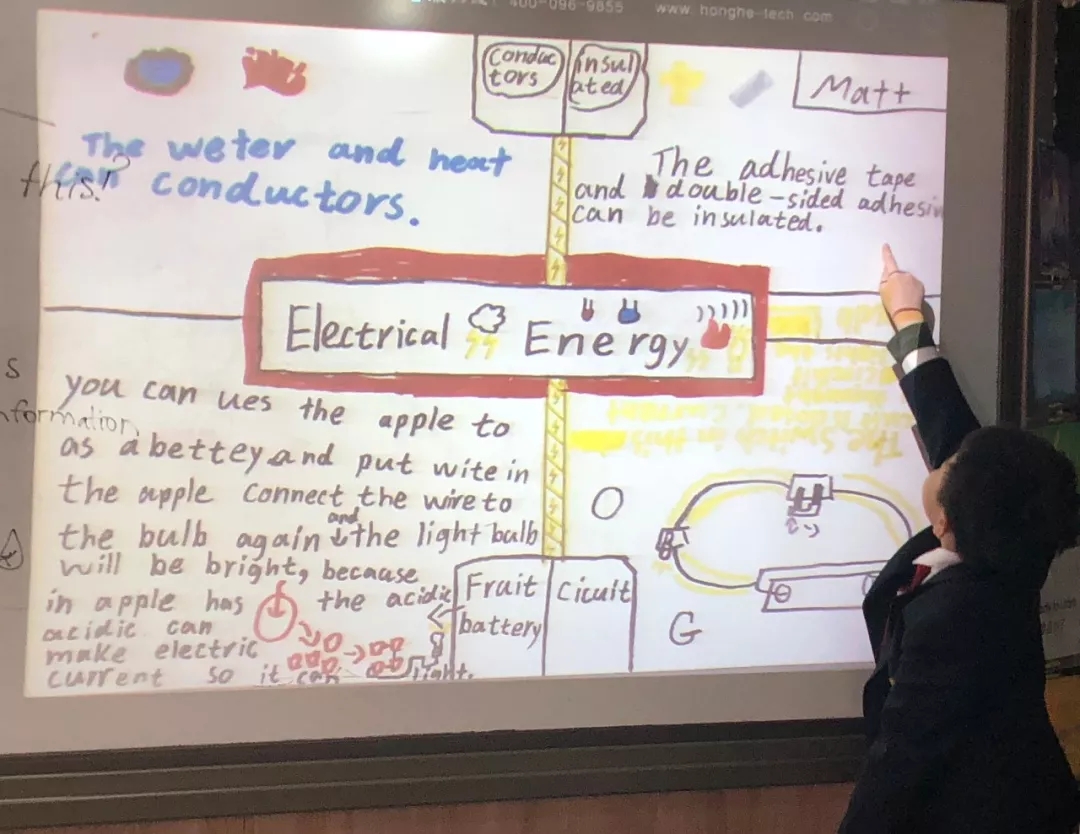 400-096-9855
www.honghe-tech.com
conduc
tors
insul
ated
Matt
The weter and heat
can conductors.
this?
The adhesive tape
and double-sided adhesiv
can be insulated.
Electrical Energy
s
nformation
you can ues the apple to
as a bettey and put wite in
the apple connect the wire to
the bulb again and the light bulb
will be bright, because
in apple has the acidic
acidic can
make electric
current so it can light.
Fruit
battery
Cicuit
The Switch in this
G